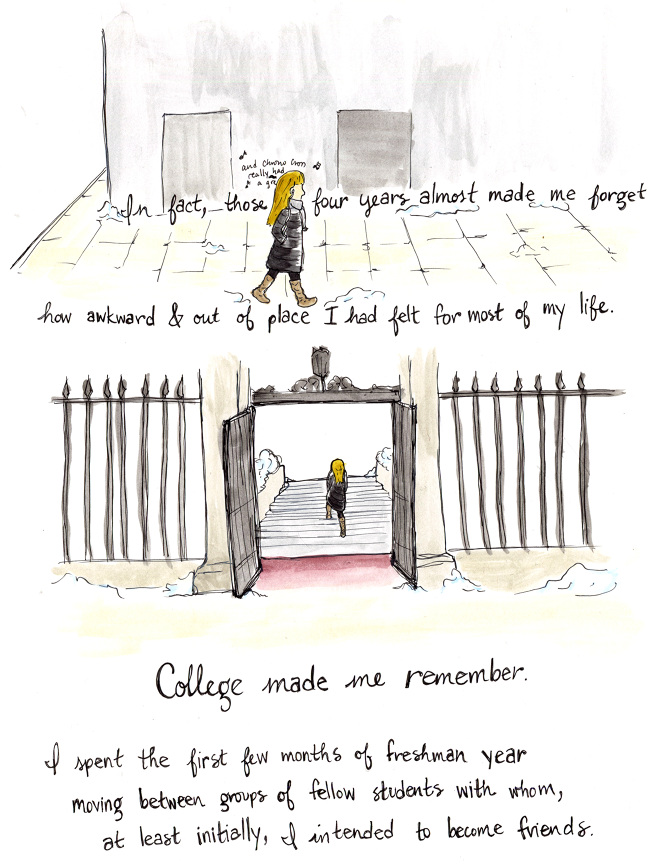 and chrono cron
really had
a gre
In fact, those four years almost made me forget
how awkward & out of place I had felt for most of my life.
College made me remember.
I spent the first few months of freshman year
moving between groups of fellow students with whom,
at least initially, I intended to become friends.